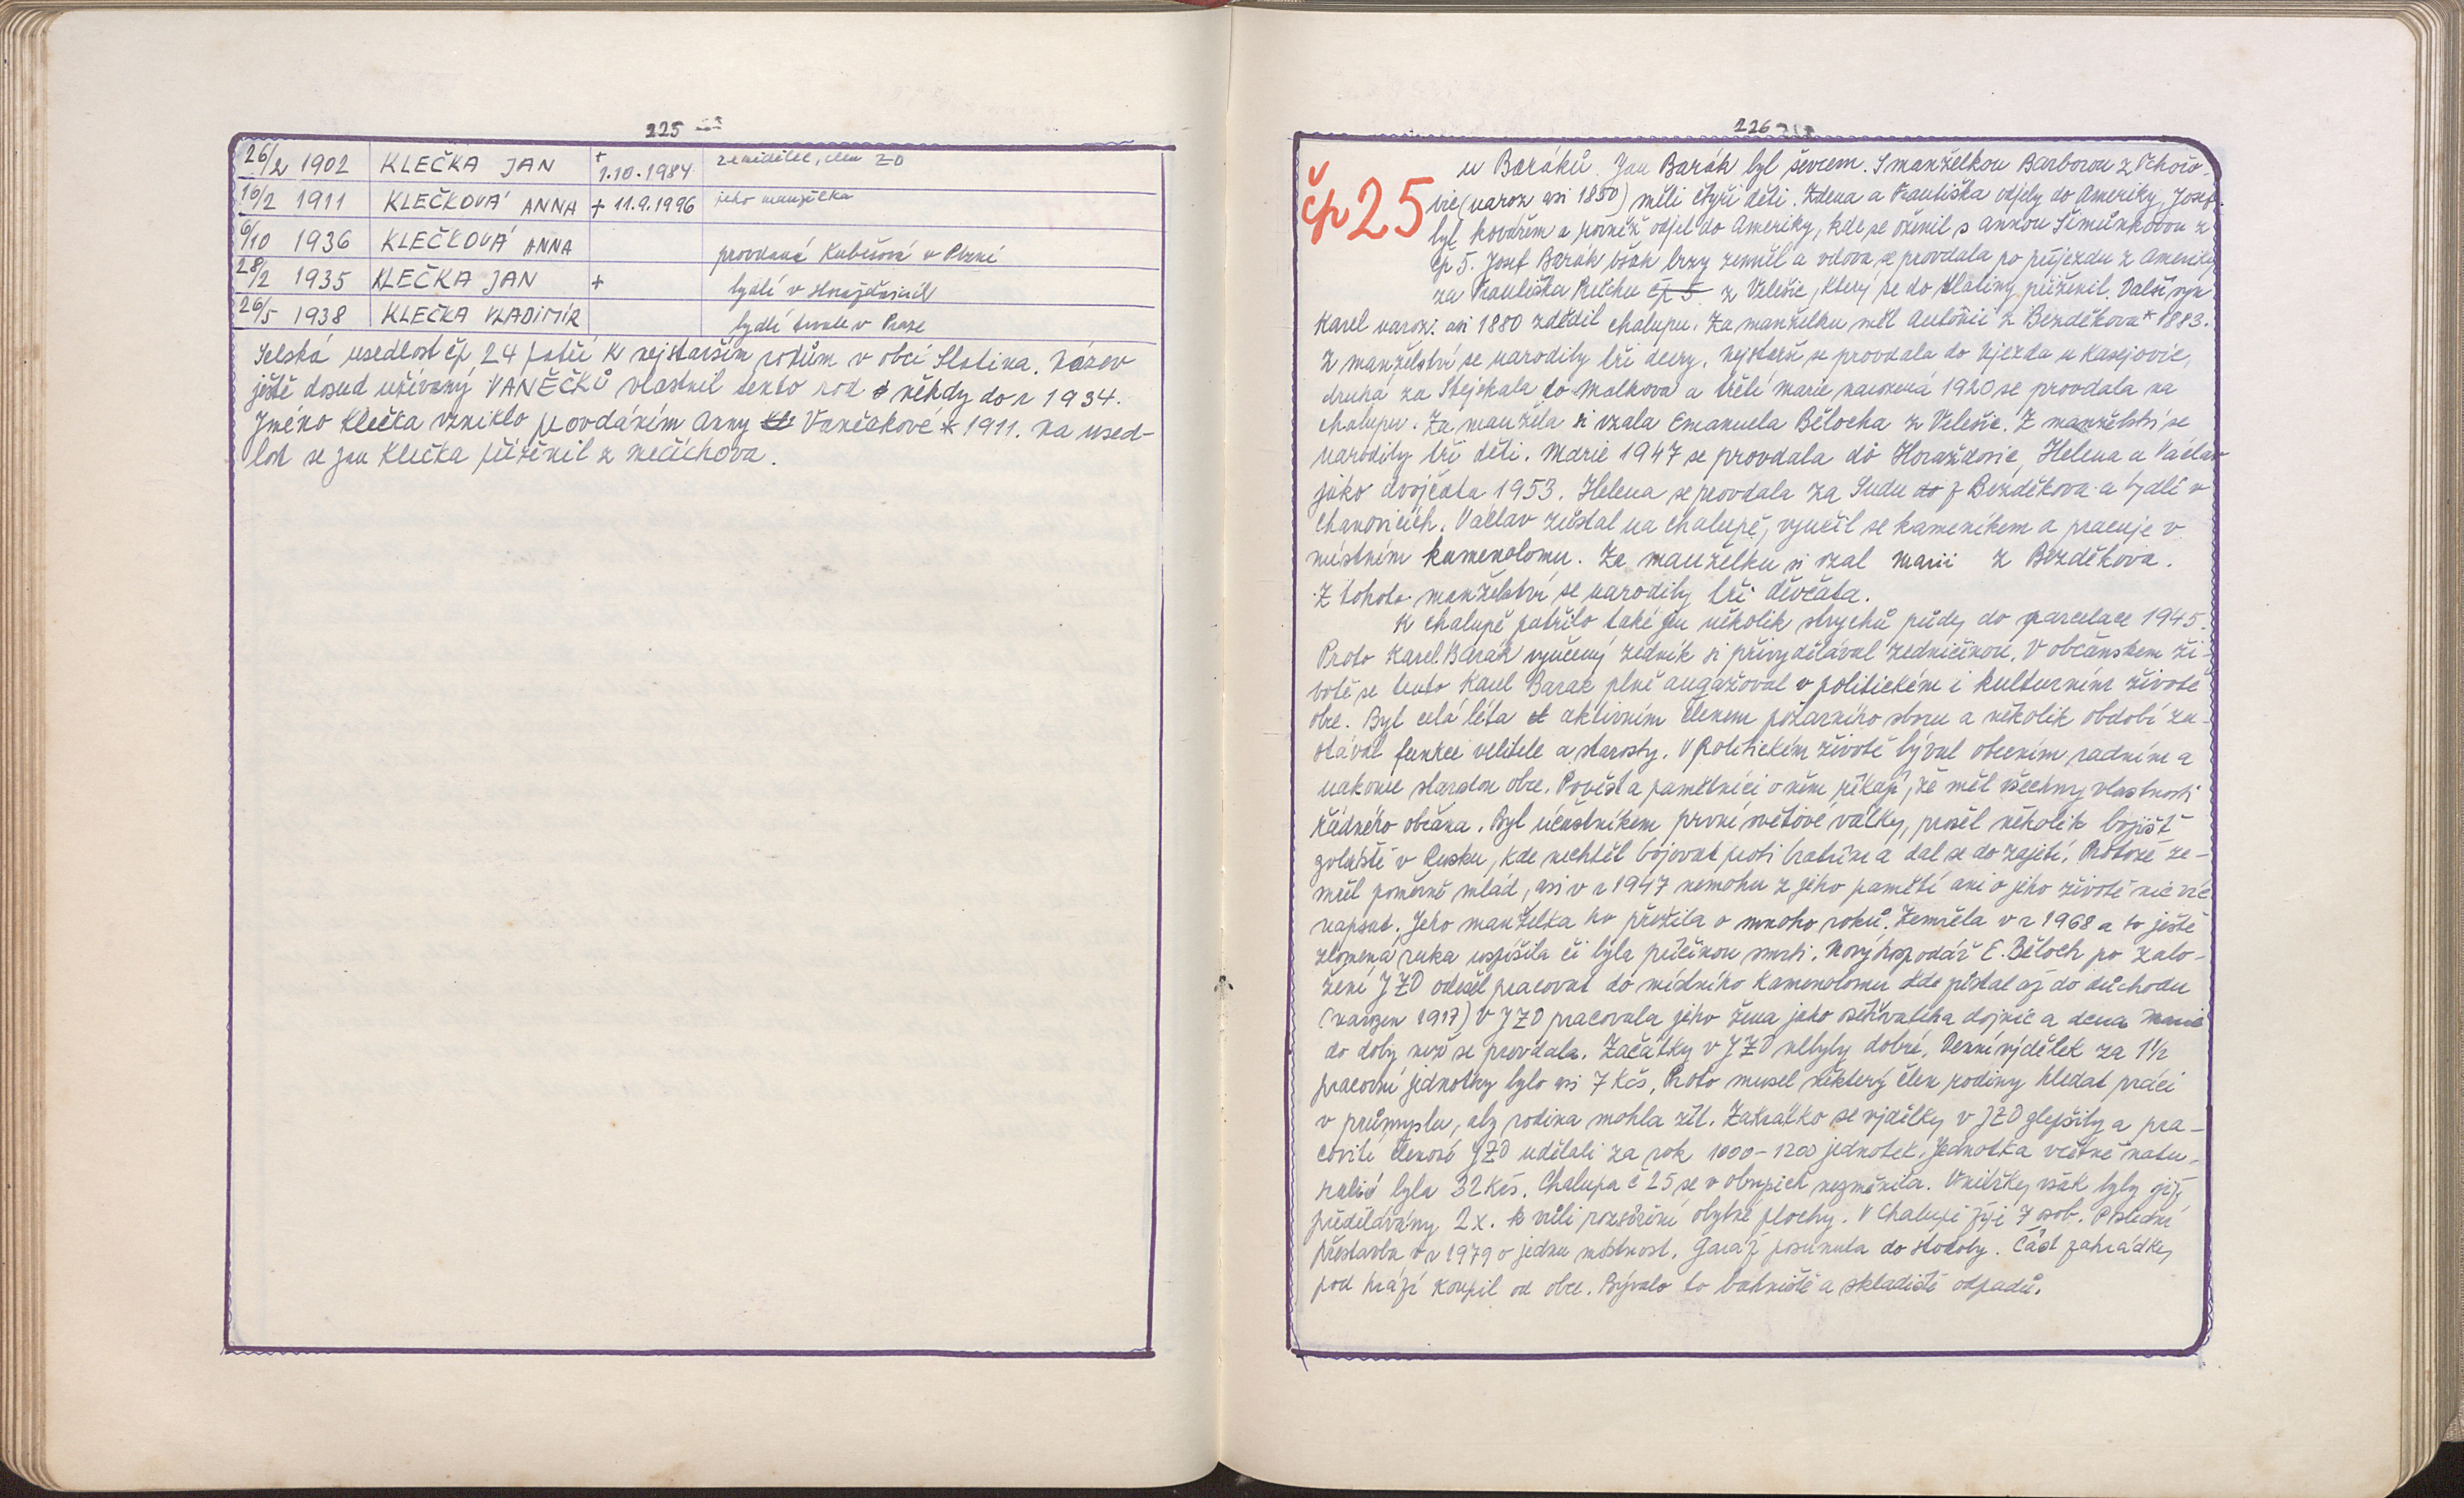 225
26/2 1902 KLEČKA JAN + 1.10.1984 zemědělec, člen ZD
16/2 1911 KLEČKOVÁ ANNA + 11.9.1996 jeho manželka
6/10 1936 KLEČKOVÁ ANNA provdaná Kubešová v Plzni
28/2 1935 KLEČKA JAN + bydlí v Horažďovicích
26/5 1938 KLEČKA VLADIMÍR bydlí trvale v Praze
Selská usedlost čp 24 patří k nejstarším rodům v obci Slatina. Název
ještě dosud užívaný VANĚČKŮ vlastnil tento rod někdy do r 1934.
Jméno Klečka vzniklo provdáním Anny Vaněčkové * 1911. Na used-
lost se Jan Klečka přiženil z Mečíchova.
226
čp 25
u Baráků. Jan Barák byl ševcem. S manželkou Barborou z Pchořo-
vic (naroz asi 1850) měli čtyři děti. Zdena a Františka odjely do Ameriky, Josef
byl kovářem a rovněž odjel do Ameriky, kde se oženil s Annou Šimůnkovou z
čp 5. Josef Barák však brzy zemřel a vdova se provdala po příjezdu z Ameriky
za Františka čp 5 z Velešic, který se do Slatiny přiženil. Další syn
Karel naroz. asi 1880 zdědil chalupu. Za manželku měl Antonii z Bezděkova * 1883.
Z manželství se narodily tři dcery. Nejstarší se provdala do Újezda u Kasejovic,
druhá za Stejskala do Malkova a třetí Marie narozená 1920 se provdala na
chalupu. Za manžela si vzala Emanuela Bělocha z Velešic. Z manželství se
narodily tři děti. Marie 1947 se provdala do Horažďovic, Helena a Václav
jako dvojčata 1953. Helena se provdala za Sudu do z Bezděkova a bydlí v
Chanovicích. Václav zůstal na chalupě, vyučil se kameníkem a pracuje v
místním kamenolomu. Za manželku si vzal Marii z Bezděkova.
Z tohoto manželství se narodily tři děvčata.
K chalupě patřilo také jen několik strychů půdy do parcelace 1945.
Proto Karel Barák vyučený zedník si přivydělával zedničinou. V občanském ži-
votě se tento Karel Barák plně angažoval v politickém i kulturním životě
obce. Byl celá léta aktivním členem požárního sboru a několik období za-
stával funkce velitele a starosty. V politickém životě býval obecním radním a
nakonec starostou obce. Pověst a pamětníci o něm říkají, že měl všechny vlastnosti
řádného občana. Byl účastníkem první světové války, prošel několik bojišť
zvláště v Rusku, kde nechtěl bojovat proti bratřím a dal se do zajetí. Protože ze-
mřel poměrně mlád, asi v r 1947 nemohu z jeho pamětí ani o jeho životě nic víc
napsat. Jeho manželka ho přežila o mnoho roků. Zemřela v r 1968 a to ještě
zlomená ruka uspíšila či byla příčinou smrti. Nový hospodář E. Běloch po zalo-
žení JZD odešel pracovat do místního kamenolomu kde zůstal až do důchodu
(narozen 1917) V JZD pracovala jeho žena jako ošetřovatelka dojnic a dcera Marie
do doby než se provdala. Začátky v JZD nebyly dobré. Denní výdělek za 1½
pracovní jednotky bylo asi 7 Kčs. Proto musel některý člen rodiny hledat práci
v průmyslu, aby rodina mohla žít. Zakrátko se výdělky v JZD zlepšily a pra-
covití členové JZD udělali za rok 1000-1200 jednotek. Jednotka včetně natu-
ralií byla 32 Kčs. Chalupa č 25 se v obrysech nezměnila. Vnitřky však byly již
předělávány 2x. k vůli rozšíření obytné plochy. V chalupě žije 7 osob. Poslední
přestavba v r 1979 o jednu místnost. Garáž posunuta do stodoly. Část zahrádky
pod hrází koupil od obce. Bývalo to bahniště a skladiště odpadů.